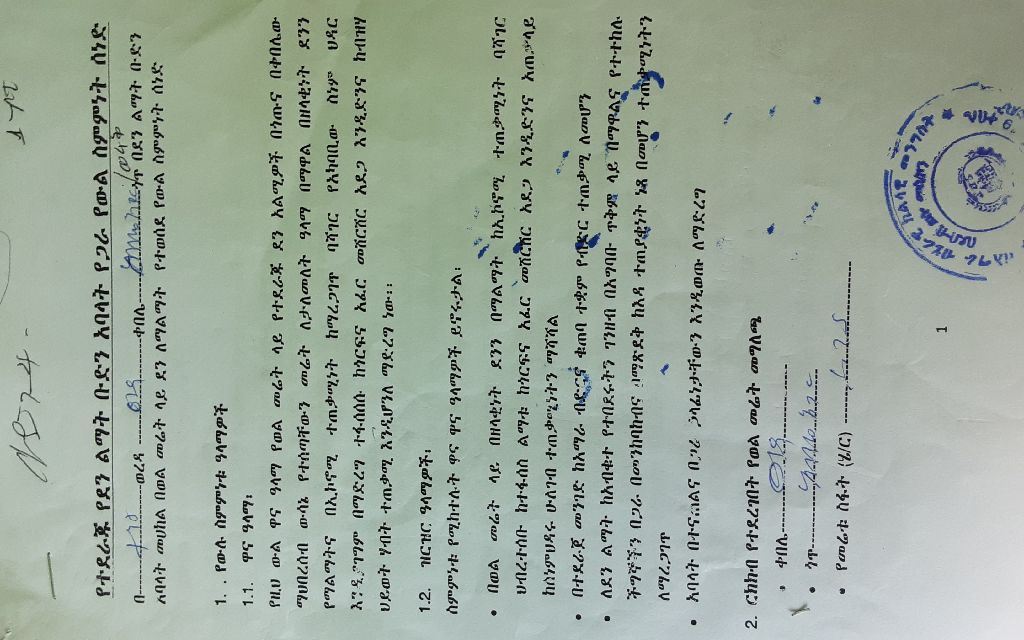 የተደራጁ የደን ልማት ቡድን አባላት የጋራ የውል ስምምነት ሰነድ
በ ወረዳ ቀበሌ ጎጥ በደን ልማት ቡድን
አባላት መሀከል በወል መሬት ላይ ደን ለማልማት የተወሰደ የውል ስምምነት ሰነድ
1. የውሉ ስምምነቱ ዓላማዎች
1.1. ዋና ዓላማ፡
የዚህ ውል ዋና ዓላማ የወል መሬት ላይ የተደራጁ ደን አልሚዎች በጎጡና በቀበሌው
ማህበረሰብ ውሳኔ የተሰጣቸውን መሬት ለታለመለት ዓላማ በማዋል በዘላቂነት ደንን
የማልማትና በኢኮኖሚ ተጠቃሚነት ከማረጋገጥ ባሻገር የአካባቢው ስነም ህዳር
እንዲያገግም በማድረግ ተፋሰሱ ከጎርፍና አፈር መሸርሸር አደጋ እንዲድንና ከብዝሃ
ህይወት ሃብት ተጠቃሚ እንዲሆንለ ማድረግ ነው፡፡
1.2. ዝርዝር ዓላማዎች፡
ስምምነቱ የሚከተሉት ዋና ዋና ዓላማዎች ይኖሩታል፡
• በወል መሬት ላይ በዘላቂነት ደንን በማልማት ከኢኮኖሚ ተጠቃሚነት ባሻገር
ህብረተሰቡ ከተፋሰስ ልማቱ ከጎርፍና አፈር መሸርሸር አደጋ እንዲድንና አጠቃላይ
ከስነምህዳሩ ሁለገብ ተጠቃሚነትን ማሻሻል
• በተደራጀ መንገድ ከአማራ ብድርና ቁጠባ ተቋም የብድር ተጠቃሚ ለመሆን
• ለደን ልማት ከአብቁተ የተበደሩትን ገንዘብ በአግባቡ ጥቅም ላይ በማዋልና የተተከሉ
ችግኞችን በጋራ በመንከባከብና በማጽደቅ ከእዳ ተጠያቂነት ነጻ በመሆን ተጠቃሚነትን
ለማረጋገጥ
• አባላት በተናጠልና በጋራ ኃላፊነታቸውን እንዲወጡ ለማድረግ
2. ርክክብ የተደረገበት የወል መሬት መግለጫ
• ቀበሌ
• ጎጥ
• የመሬቱ ስፋት (ሄ/ር)
1